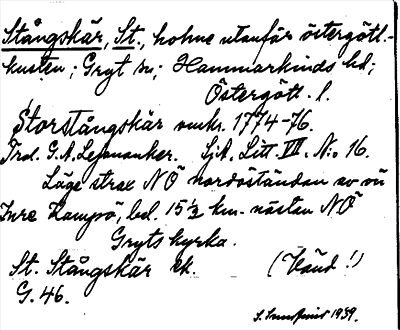 Stångskär, St., holme utanför östergötl.-
kusten; Gryt sn; Hammarkinds hd;
Östergötl. l.
Storstångskär omkr. 1774-76.
Trol. G.A. Lejonanker. Sjk. Litt. VII. No 16.
Läge strax NÖ nordöständan av ön
Inre Kampö, bel. 15½ km. nästan NÖ
Gryts kyrka.
St. Stångskär ek. (Vänd!)
G. 46.
1939.